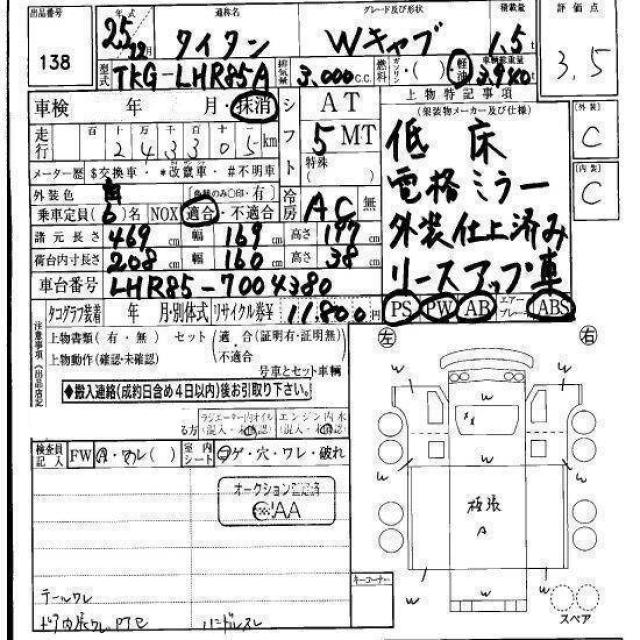 出品番号 138
年式 25年12月
通称名 タイタン
グレード及び形状 Wキャブ
積載量 1.5t
評価点 3.5
型式 TKG-LHR85A
排気量 3,000c.c.
燃料 ガソリン・( )・軽油
車輌総重量 3,940
車検 年 月・抹消
シフト AT 5MT 特殊( )
走行 百十万千百十 243305km
メーター歴 $交換車・*改竄車・#不明車
外装色 白
冷房 AC 無
乗車定員(6)名 NOX 適合・不適合
諸元長さ 469cm 幅 169cm 高さ 197cm
荷台内寸長さ 208cm 幅 160cm 高さ 38cm
車台番号 LHR85-7004380
上物特記事項
(架装物メーカー及び仕様)
低床
電格ミラー
外装仕上済み
リースアップ車
PS PW AB エアーブレーキ ABS
外装 C
内装 C
タコグラフ装着 年 月・別体式 リサイクル券¥11,800円
注意事項(出品店記
上物書類(有・無) セット(適合(証明有・証明無)・不適合
上物動作(確認・未確認) 号車とセット車輌
◆搬入連絡(成約日含め4日以内)後お引取り下さい。
ラジエーター内オイル エンジン内水
(混入・未確認) (混入・未確認)
検査員記入 FW 室内シート コゲ・穴・ワレ・破れ
オークション
テールワレ
キーコーナー
左 右
W W W
W W
W W
板張
A
W W W
スペア